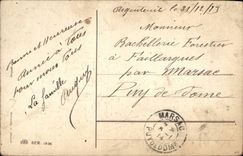 Argenteuil le 31/12/13
Monsieur
Bachellerie Forestier
à Faillargues
par Marsac
Puy de Dome
Bonne et Heureuse
Année à Tous
pour nous Tous
La famille
MARSAC
PUY-DE-DOME